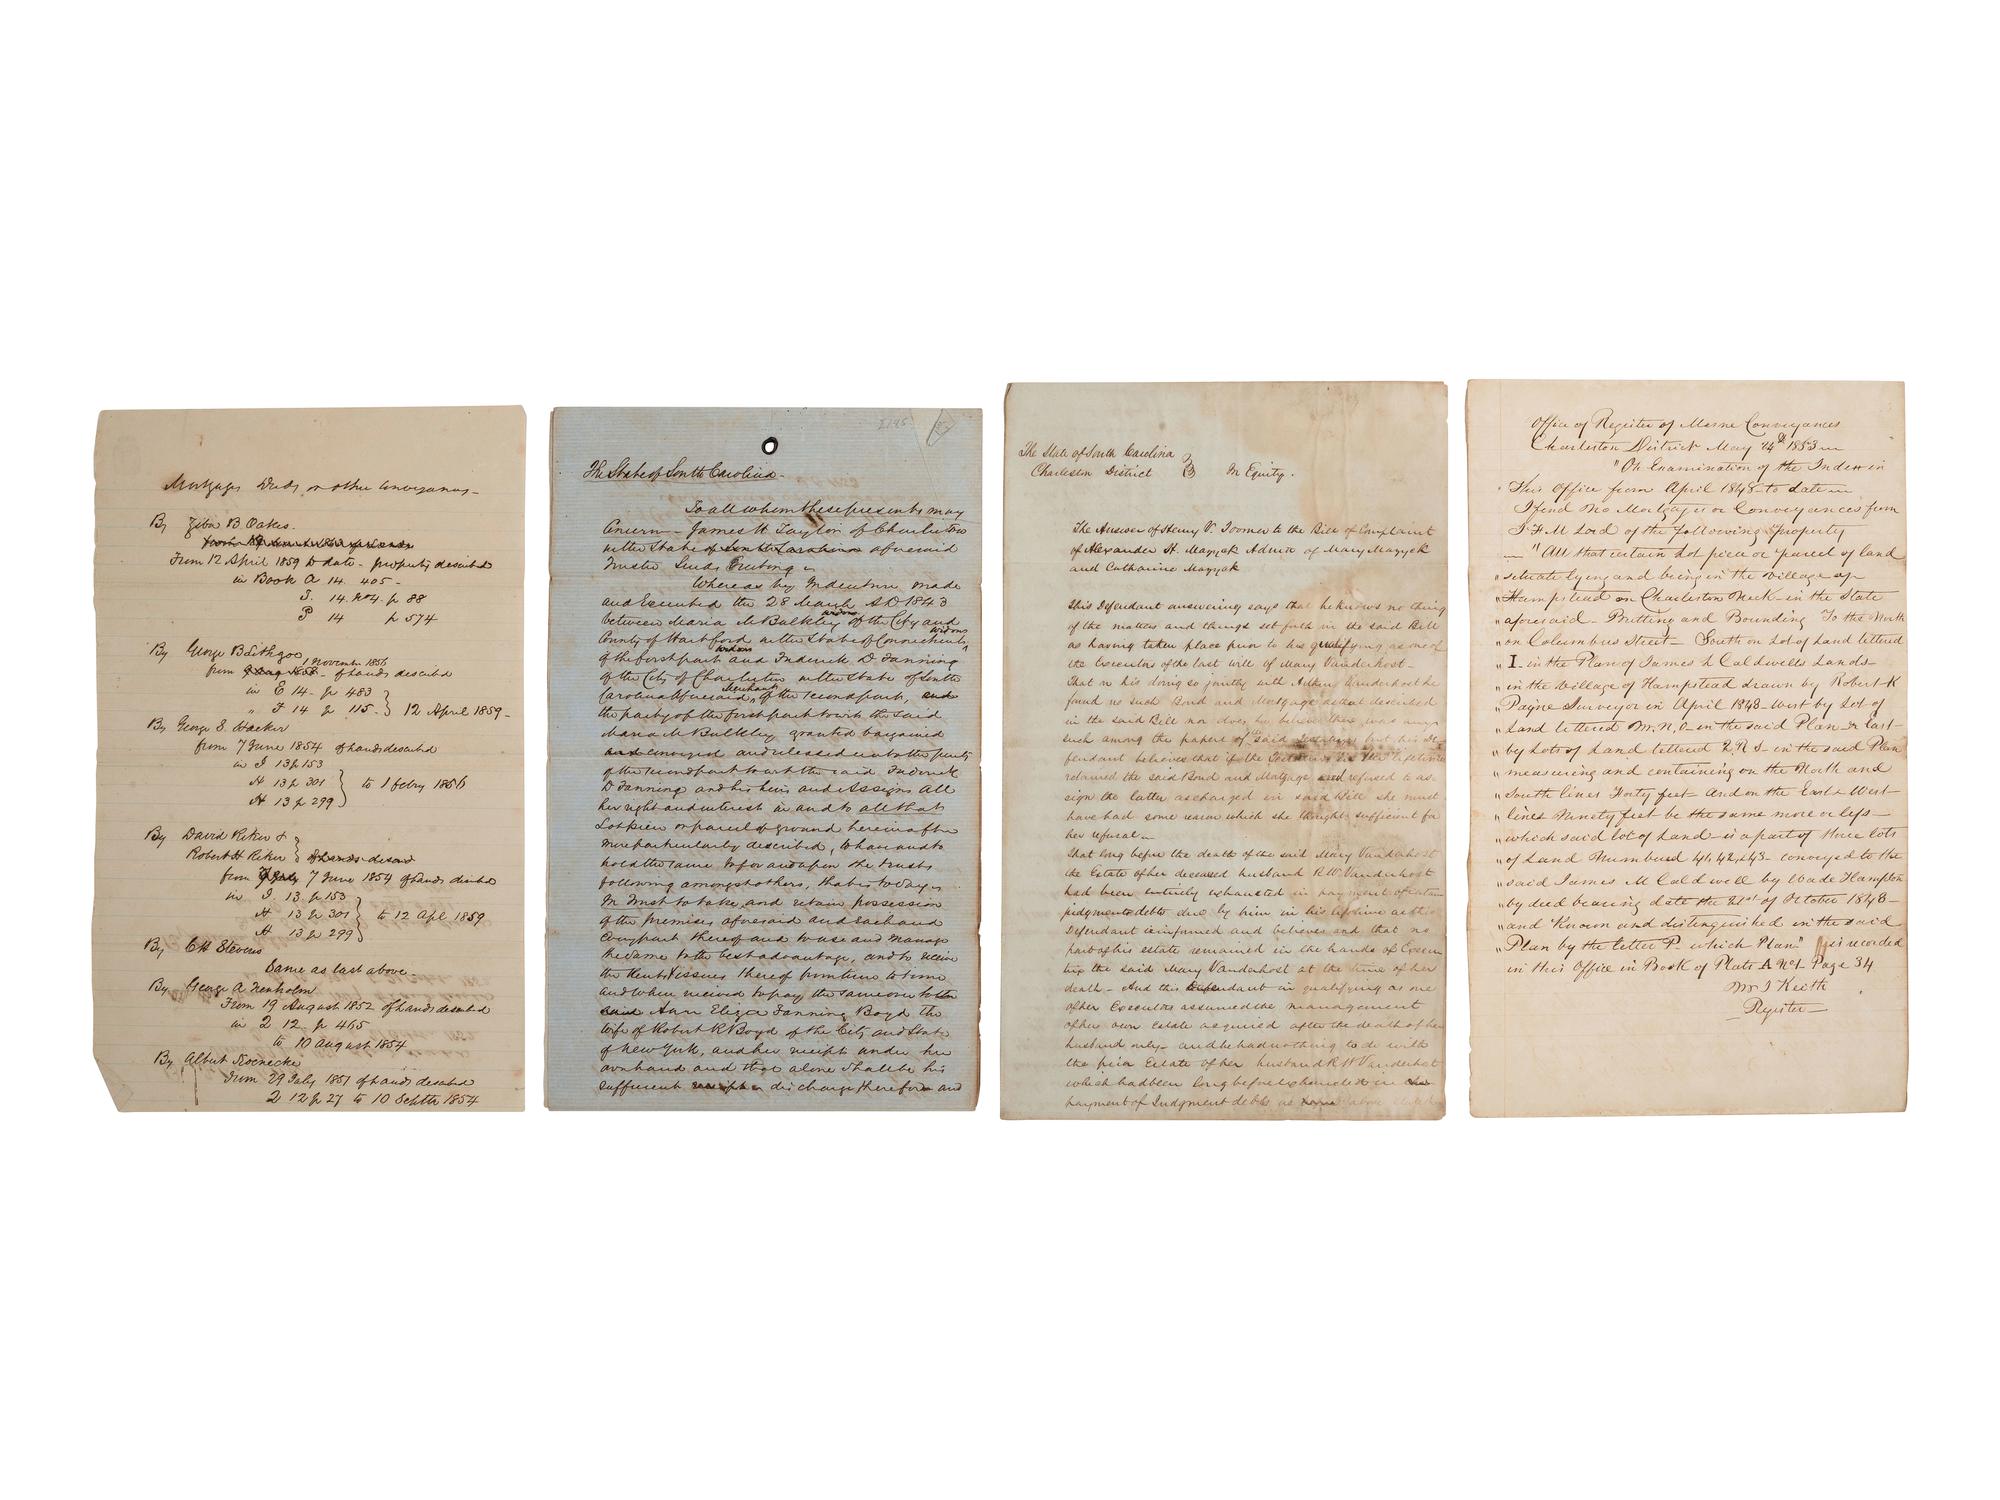 Mortgages Deeds or other Conveyances
By Ziba B Oakes.
From 12 April 1859 to date - property described
in Book A 14. 405 -
S. 14. No 4. p 88
P 14 p 574
By George B Lithgoe
1 November 1856
from of lands described
in E 14 - p 483
" F 14 p 115 - } 12 April 1859 -
By George S. Hacker
from 7 June 1854 of lands described
in I 13 p 153
H 13 p 301
H 13 p 299 } to 1 Febry 1856
By David Riker &
Robert H Riker
from 7 June 1854 of lands described
in I. 13 p 153
H 13 p 301 to 12 Apl 1859
H 13 p 299
By C H Stevens
Same as last above -
By George A Trenholm
From 19 August 1852 of lands described
in Q 12 - p 465
to 10 August 1854
By Albert Roenecke
From 29 July 1851 of lands described
Q 12 p 27 to 10 Septtr 1854
The State of South Carolina -
To all whom these presents may
Concern - James H Taylor of Charleston
in the State of South Carolina aforesaid
Trustee Sends Greeting
Whereas by Indenture made
and Executed the 28 March AD 1843
between Maria M Bulkley of the City and
County of Hartford in the State of Connecticut
widow
of the first part and Frederick D Fanning
of the City of Charleston in the State of South
Carolina aforesaid, Merchant of the second part, and
the party of the first part to wit the said
Maria M Bulkley granted bargained
and conveyed and released unto the party
of the second part to wit the said Frederick
D Fanning and his heirs and Assigns All
her right and interest in and to all that
Lot piece or parcel of ground herein after
more particularly described, to have and to
hold the same to for and upon the trusts
following amongst others, that is to say
In trust to take and retain possession
of the premises aforesaid and each and
Every part thereof and to use and manage
the same to the best advantage, and to receive
the Rents & issues thereof from time to time
and when received to pay the same over to the
said Ann Eliza Fanning Boyd the
wife of Robert R Boyd of the City and State
of New York, and her receipt under her
own hand and that alone shall be his
sufficient discharge therefor and
The State of South Carolina
Charleston District } In Equity.
The Answer of Henry V. Toomer to the Bill of Complaint
of Alexander H. Mazyck Admor of Mary Mazyck
and Catharine Mazyck
This Defendant answering says that he knows no thing
of the matters and things set forth in the said Bill
as having taken place prior to his qualifying as one of
the Executors of the last will of Mary Vanderhorst -
That on his doing so jointly with Vanderhorst he
found no such Bond and Mortgage as that described
in the said Bill nor does he believe there was any
such among the papers of the said but his De-
fendant believes that if the
retained the said Bond and Mortgage and refused to as-
sign the latter as charged in said Bill she must
have had some reason which she thought sufficient for
her refusal -
That long before the death of the said Mary Vanderhorst
the Estate of her deceased husband R. W. Vanderhorst
had been entirely exhausted in payment of certain
judgments debts due by him in his lifetime as this
Defendant is informed and believes and that no
part of his estate remained in the hands of Execu
trix the said Mary Vanderhorst at the time of her
death - And this Defendant in qualifying as one
of her Executors assumed the management
of her own estate acquired after the death of her
husband only - and he had nothing to do with
the prior Estate of her husband R W Vanderhorst
which had been long before exhausted in the
payment of Judgment debts as above
Office of Register of Mesne Conveyances
Charleston District May 14th 1853
"On Examination of the Index in
This Office from April 1848 to date
I find No Mortgages or Conveyances from
J F M Lord of the following property
"All that certain Lot piece or parcel of land
" situate lying and being in the Village of
" Hampstead on Charleston Neck - in the State
" aforesaid - Butting and Bounding To the North
" on Columbus Street - South on Lot of Land lettered
" I - in the Plan of James M Caldwells Lands -
" in the Village of Hampstead drawn by Robert K
" Payne Surveyor in April 1848 - West by Lot of
" Land lettered M, N, O - in the said Plan - & East -
" by Lots of Land lettered Q R S - in the said Plan
" measuring and containing on the North and
" South lines Forty feet - and on the East & West -
" lines Ninety feet be the same more or less -
" which said lot of Land - is a part of three lots
" of Land Numbered 41, 42, & 43 - conveyed to the
" said James M Caldwell by Wade Hampton
" by deed bearing date the 21st of October 1848 -
" and Known and distinguished in the said
" Plan by the letter P - which Plan" is recorded
in this Office in Book of Plats A No 1 Page 34
Wm J Keith
Register -